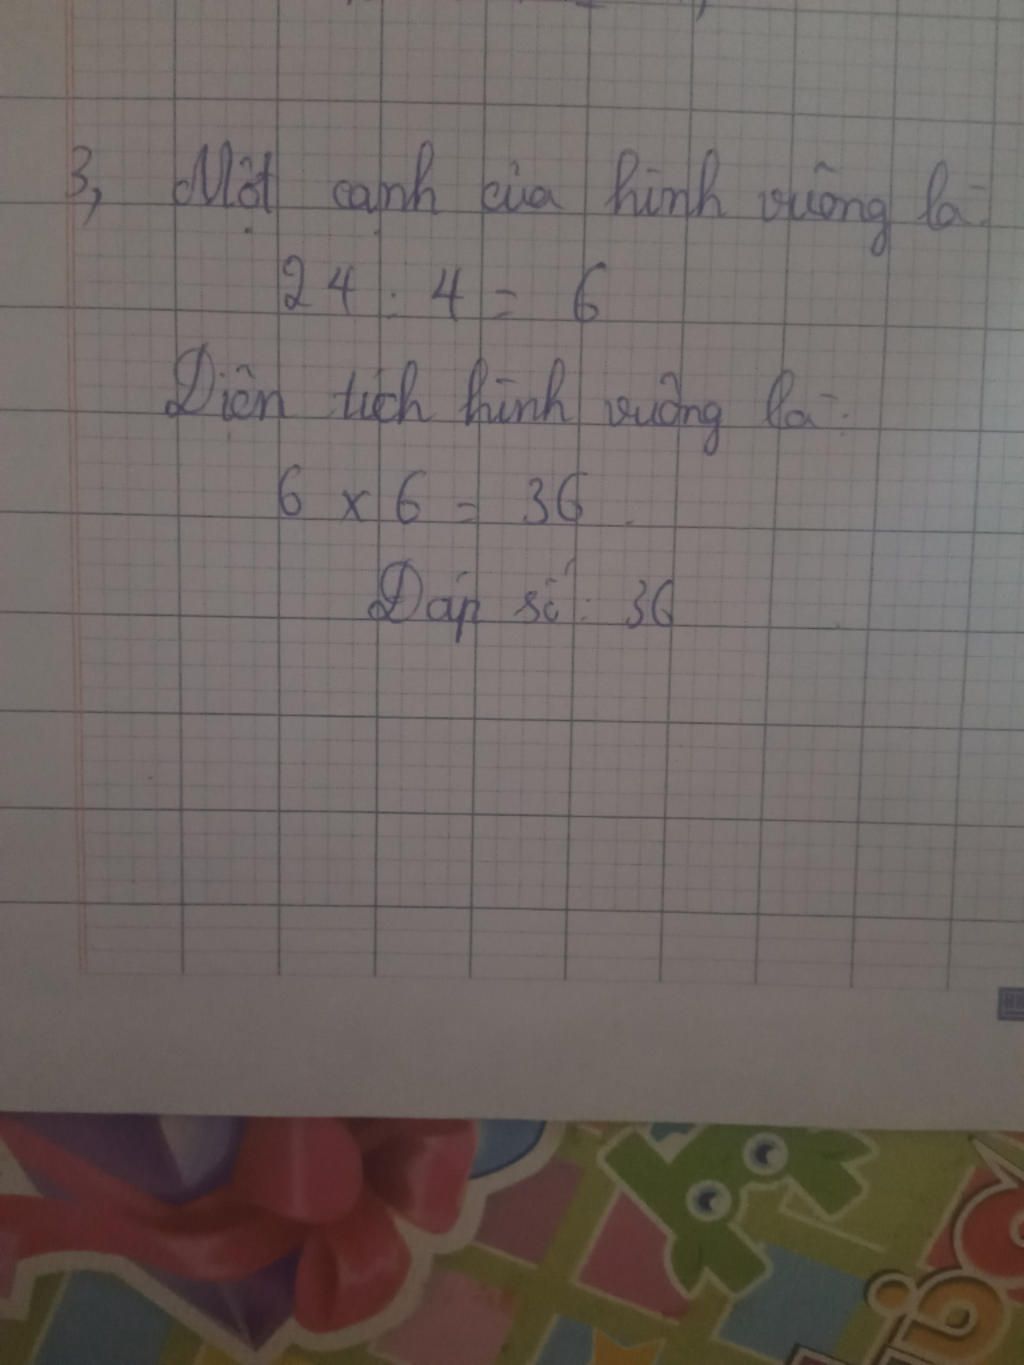 3, Một cạnh của hình vuông là:
24 : 4 = 6
Diện tích hình vuông là:
6 x 6 = 36
Đáp số: 36